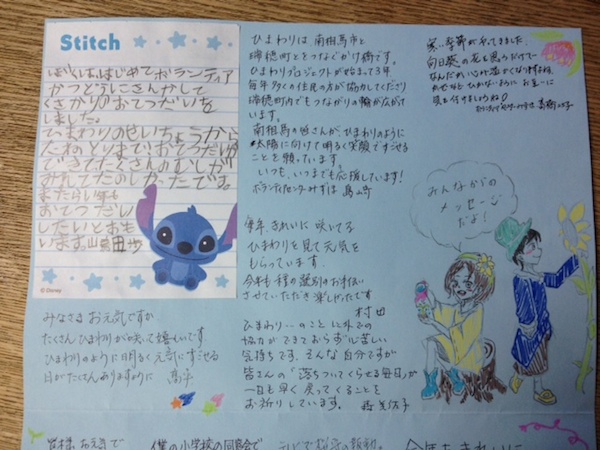 Stitch
ぼくは、はじめてボランティア
かつどうにさんかして
くさかりのおてつだいを
しました。
ひまわりのせいちょうから
たねとりまでおてつだいが
できてたくさんのむしが
みれてたのしかったです。
またらい年も
おてつだい
したいとおも
います。
© Disney
みなさまお元気ですか
たくさんひまわりが咲いて嬉しいです。
ひまわりのように明るく元気にすごせる
日がたくさんありますように
ひまわりは、南相馬市と
瑞穂町とをつなぐかけ橋です。
ひまわりプロジェクトが始まって3年
毎年多くの住民の方が協力してくださり
瑞穂町内でもつながりの輪が広がけて
います。
南相馬の皆さんが、ひまわりのように
太陽に向けて明るく笑顔ですごせる
ことを願っています。
いつも、いつまでも応援しています!
ボランティアセンターみずほ 島崎
毎年、きれいに咲いてる
ひまわりを見て元気を
もらっています。
今年も種の選別のお手伝い
させていただき楽しかったです
村田
ひまわり…のこと以外での
協力ができておらず心苦しい
気持ちです。そんな自分ですが
皆さんの「落ちついてくらせる毎日」が
一日も早く戻ってくることを
お祈りしています。
寒い季節が来てきました。
向日葵の花を思うだけで
なんだか心が温かくなりますね。
かぜなどひかないようにお互いに
気を付けましょうね♡
みんなからの
メッセージ
だよ!
皆様、お元気で
僕の小学校の同窓会で
今年もきれいに